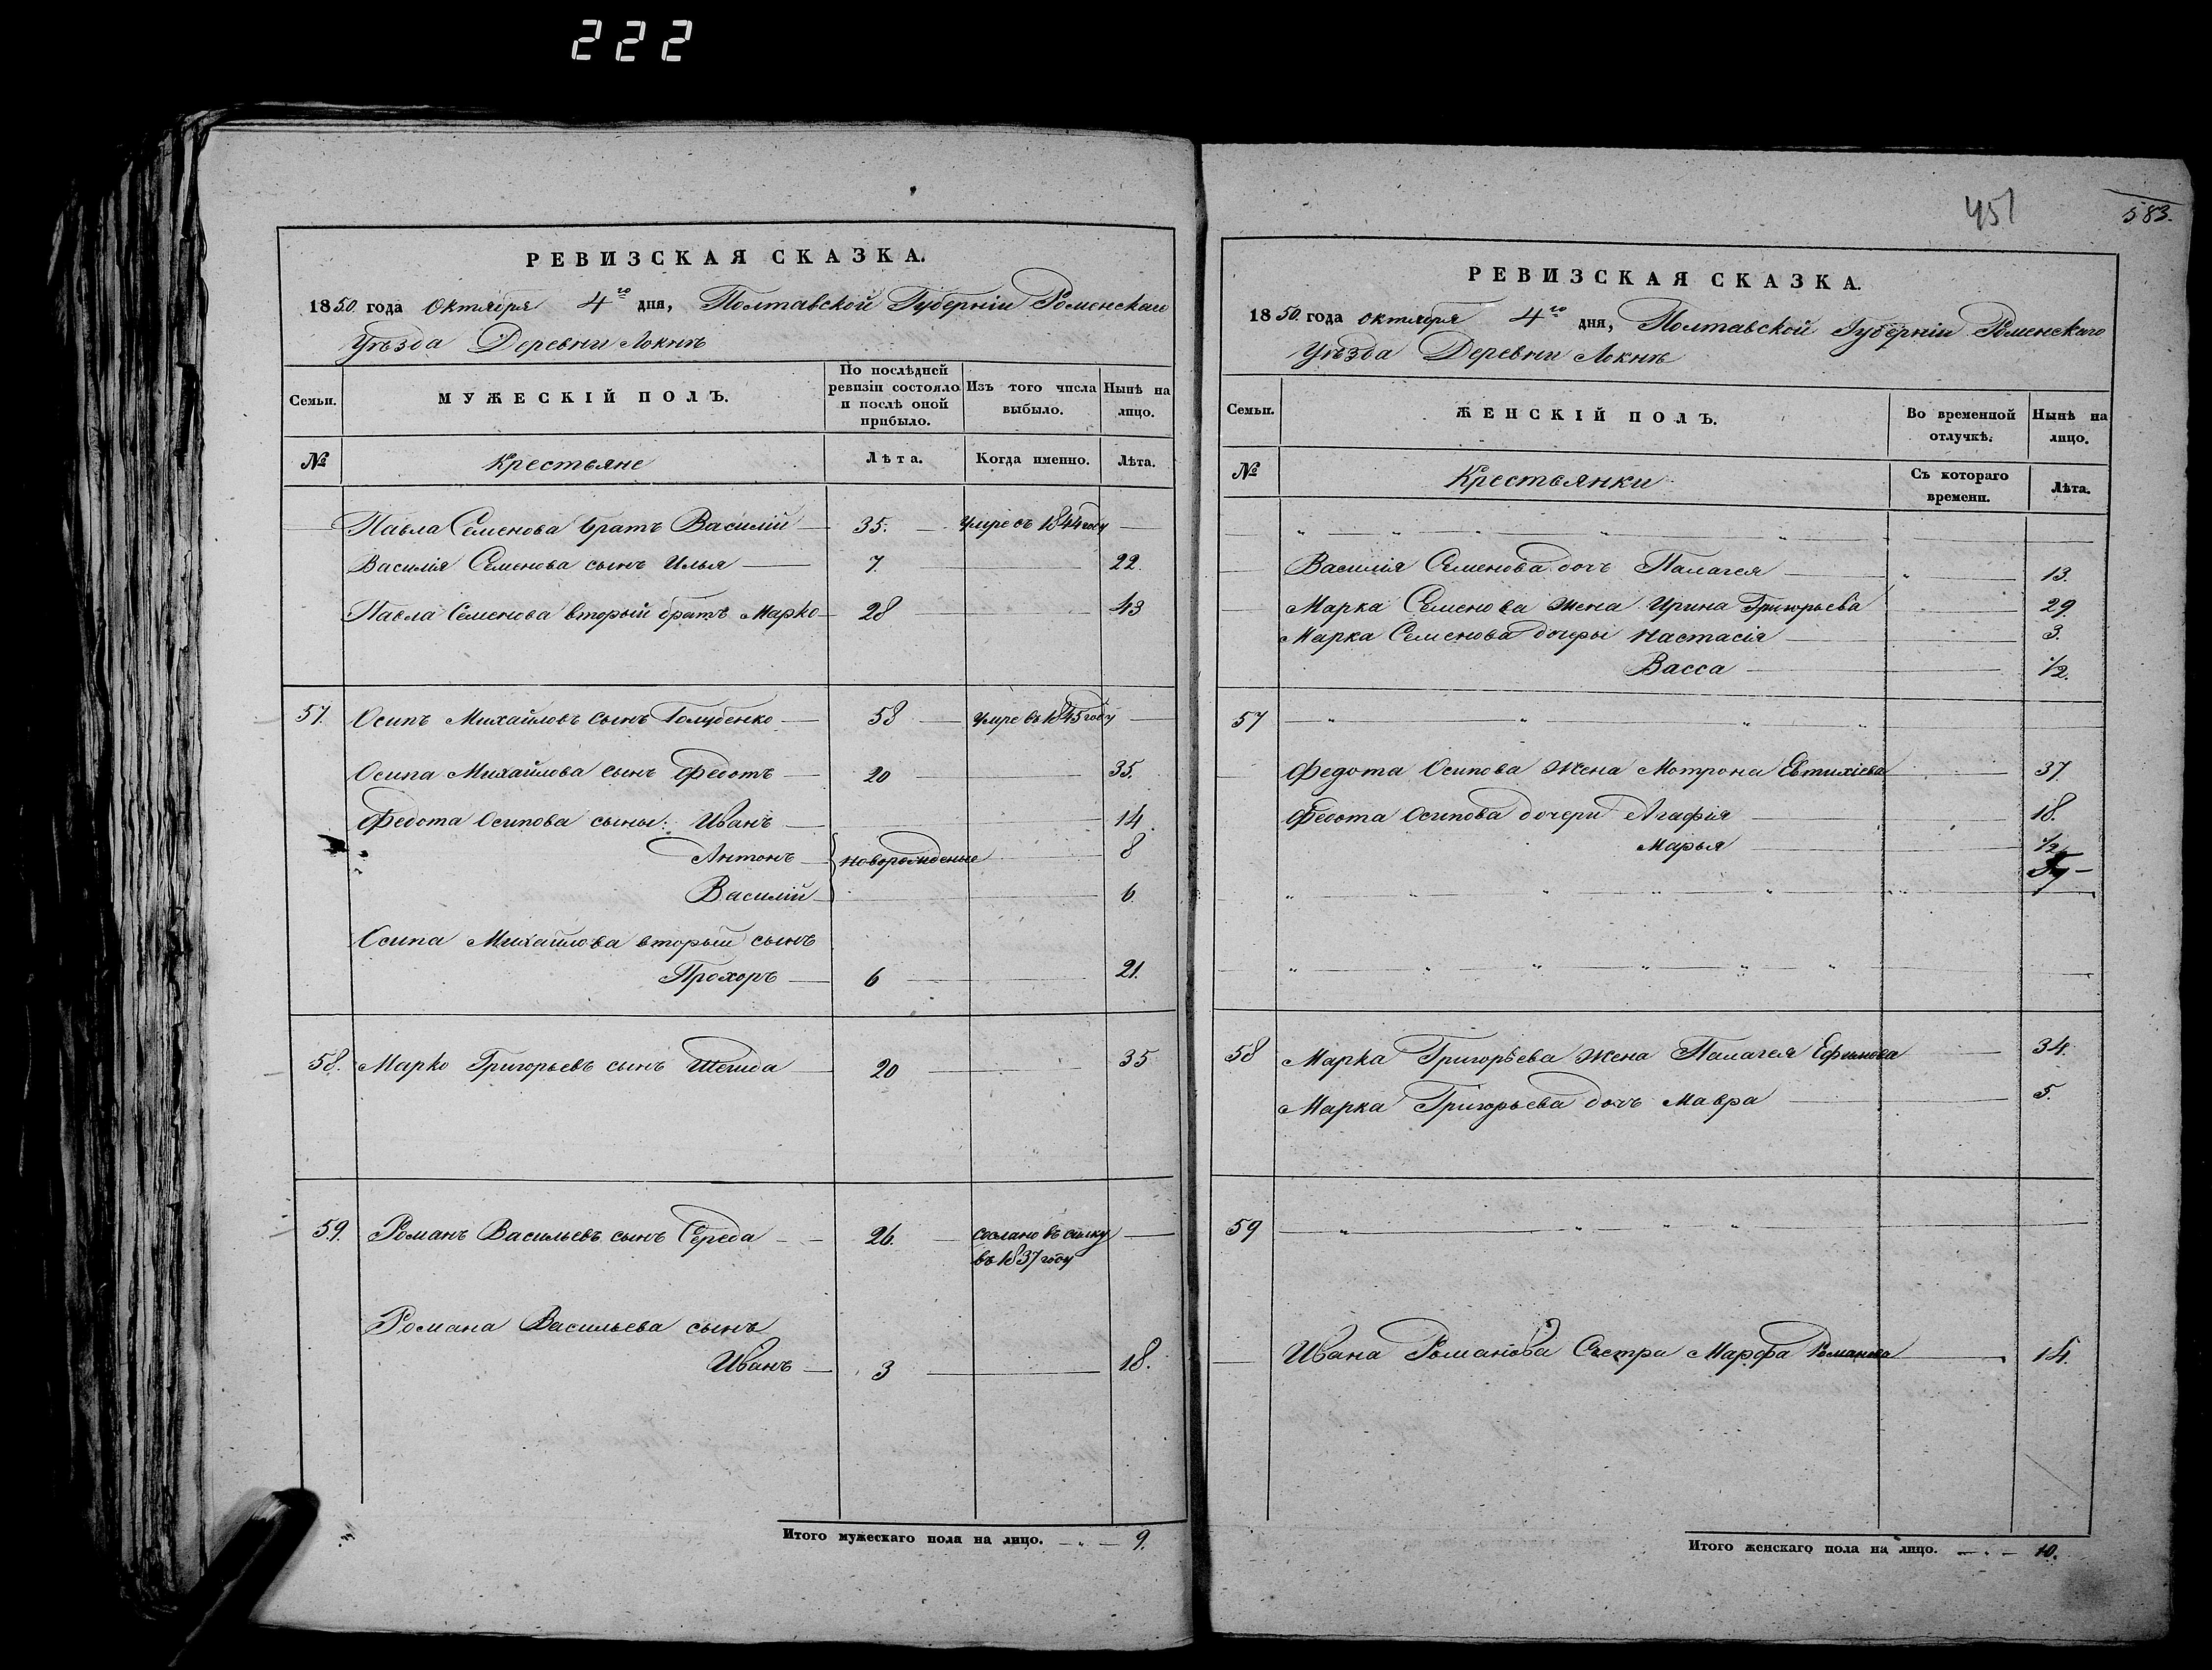 222
РЕВИЗСКАЯ СКАЗКА.
1850. года Октября 4го дня, Полтавской Губерніи Роменскаго
Уѣзда Деревни Локнѣ
Семьи.
МУЖЕСКІЙ ПОЛЪ.
По послѣдней ревизіи состояло и послѣ оной прибыло.
Изъ того числа выбыло.
Нынѣ на лицо.
№ Крестьяне Лѣта. Когда именно. Лѣта.
Павла Семенова братъ Василій 35. Умре съ 1844 году
Василія Семенова сынъ Илья 7. 22.
Павла Семенова вторый братъ Марко 28 43
57. Осипъ Михайловъ сынъ Голубенко 58 Умре въ 1845 году
Осипа Михайлова сынъ Федотъ 20 35.
Федота Осипова сыны: Иванъ 14.
Антонъ новорожденые 8
Василій 6.
Осипа Михайлова вторый сынъ
Прохоръ 6 21.
58. Марко Григорьевъ сынъ 20 35
59. Романъ Васильевъ сынъ Середа 26. сослано въ сылку
въ 1837 году
Романа Васильева сынъ
Иванъ 3 18.
Итого мужескаго пола на лицо. 9.
451
583.
РЕВИЗСКАЯ СКАЗКА.
1850. года октября 4го дня, Полтавской Губерніи Роменскаго
Уѣзда Деревни Локнѣ
Семьи.
ЖЕНСКІЙ ПОЛЪ.
Во временной отлучкѣ.
Нынѣ на лицо.
№ Крестьянки Съ котораго времени. Лѣта.
Василія Семенова дочь Палагея 13.
Марка Семенова жена Ирина Григорьева 29.
Марка Семенова дочеры Настасія 3.
Васса 1/2.
57
Федота Осипова жена Мотрона Евтихіева 37.
Федота Осипова дочери Агафія 18.
Марья 1/2
58 Марка Григорьева жена Палагея Ефимова 34.
Марка Григорьева дочь Мавра 5.
59
Ивана Романова Сестра Марфа Романова 14.
Итого женскаго пола на лицо. 10.